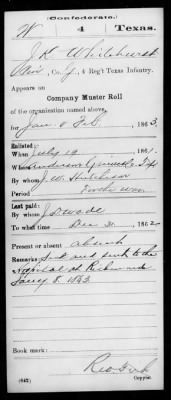 (Confederate.)
W 4 Texas.
J. K. Whitehurst
Priv, Co. , 4 Reg't Texas Infantry.
Appears on
Company Muster Roll
of the organization named above,
for Jan & Feb, 1863.
Enlisted:
When July 19, 1861.
Where Grimes Co. Tex
By whom J. W. Hutcheson
Period war
Last paid:
By whom J. D. Wade
To what time Dec 31, 1862
Present or absent absent
Remarks: Sick and sent to the
Hospital at Richmond
Jany 8. 1863
Book mark:
(642) Copyist.